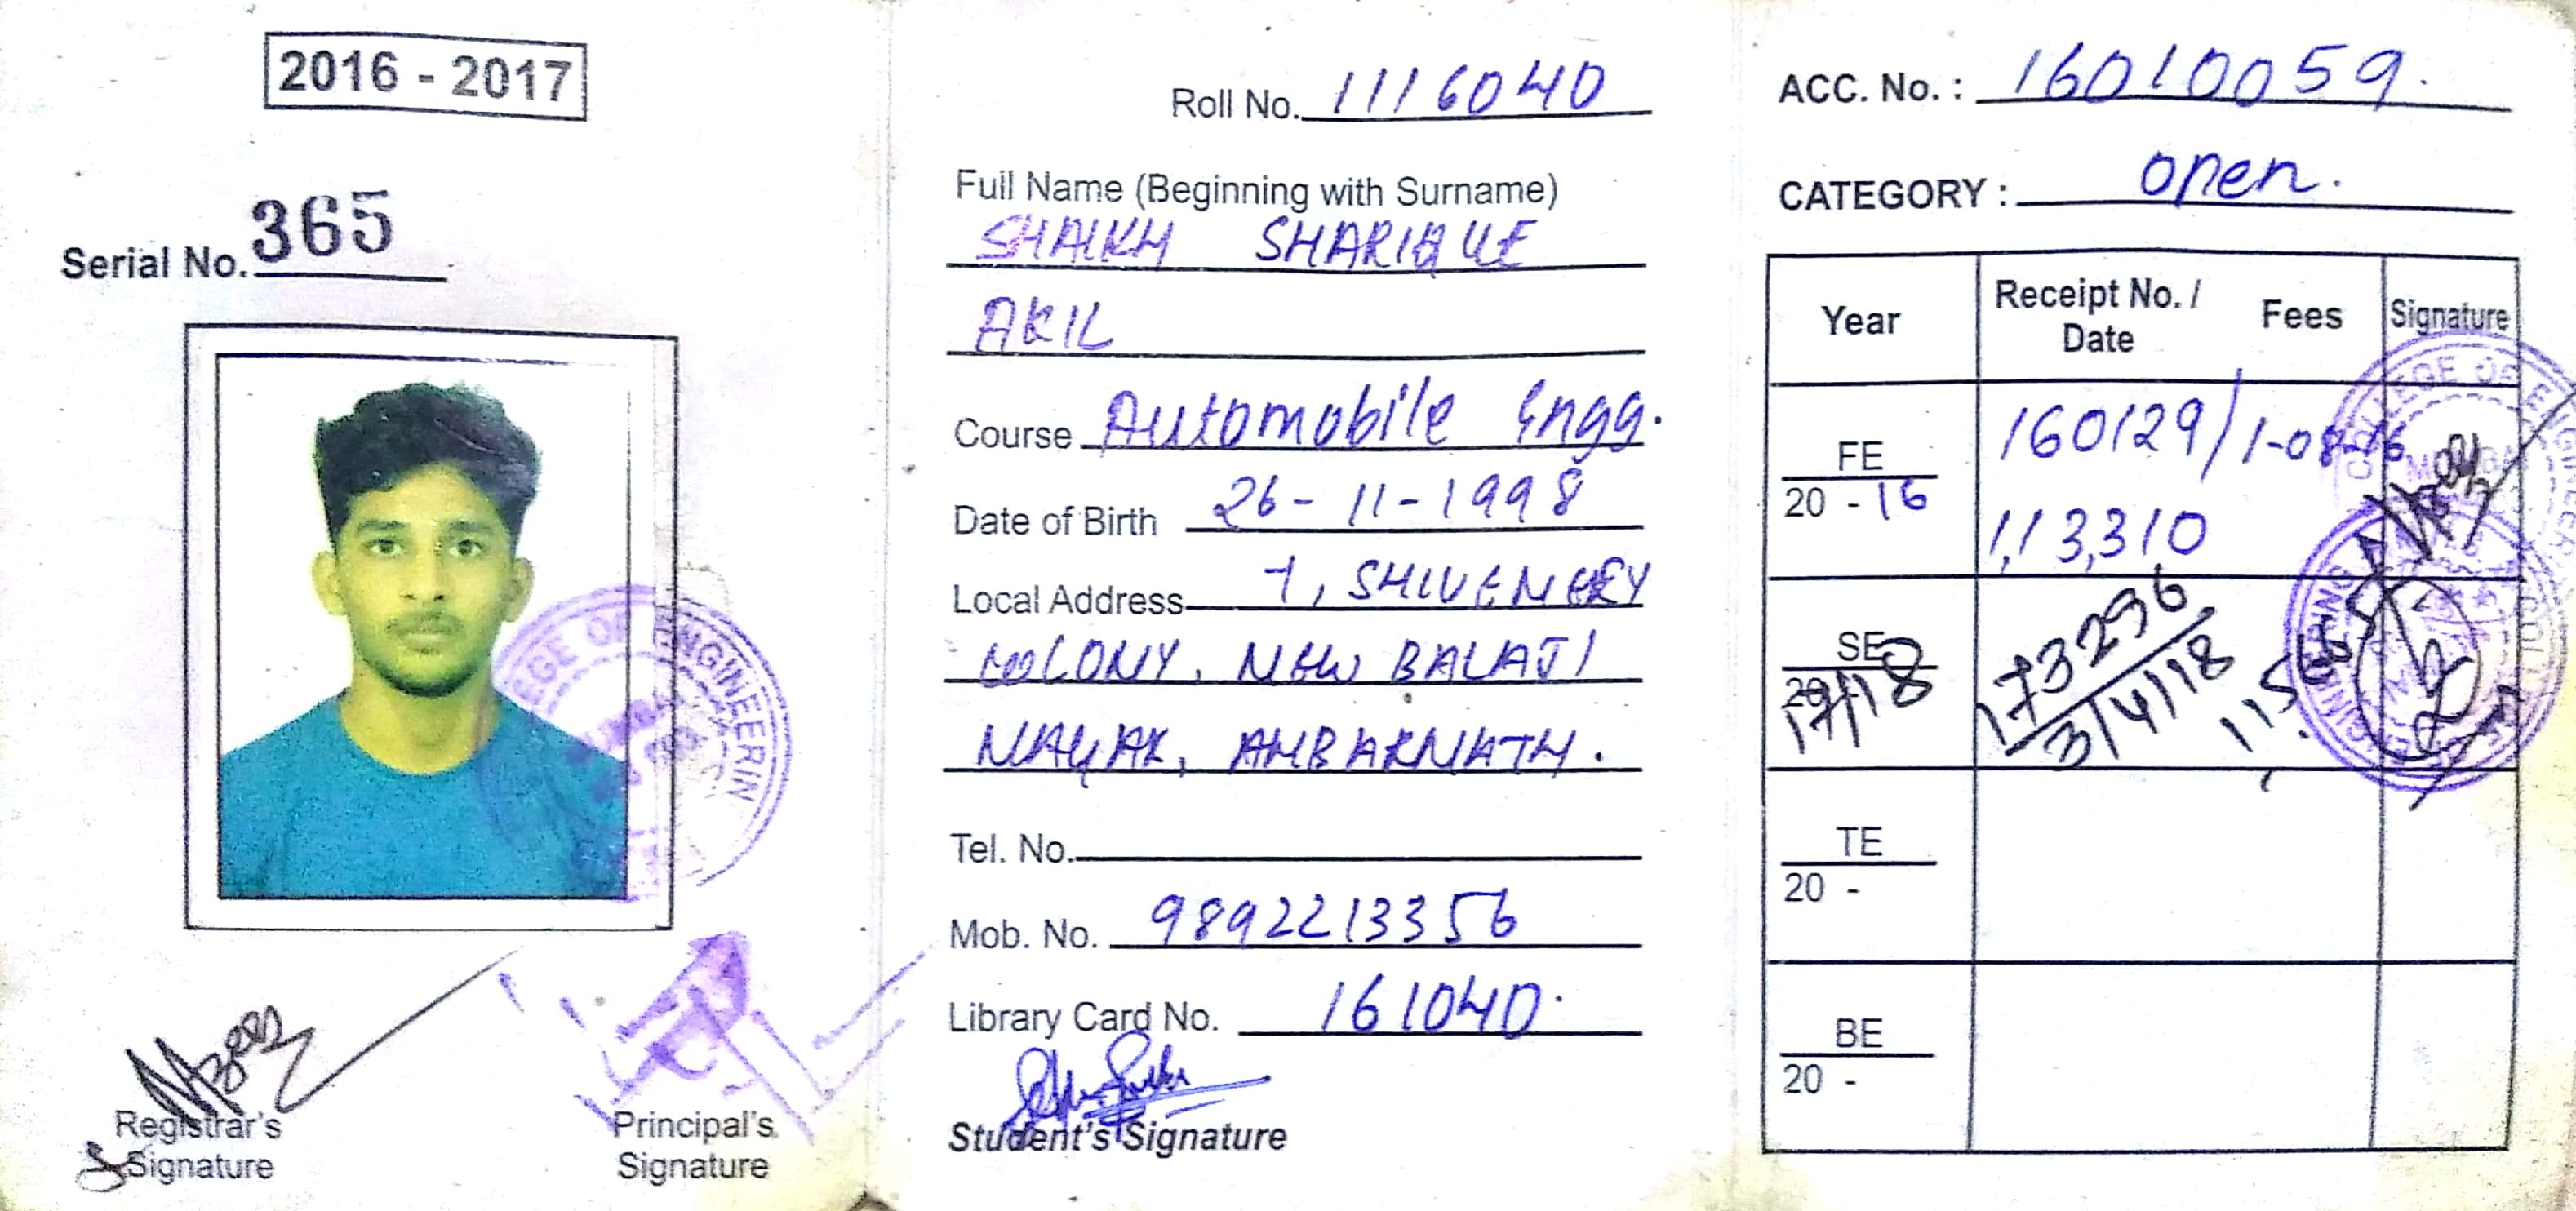 2016 - 2017
Serial No. 365
COLLEGE OF ENGINEERIN
Registrar's
Signature
Principal's
Signature
Roll No. 1116040
Full Name (Beginning with Surname)
SHAIKH SHARIQUE
AKIL
Course Automobile Engg.
Date of Birth 26-11-1998
Local Address 7, SHIVENERY
COLONY, NEW BALAJI
NAGAR, AMBARNATH.
Tel. No.
Mob. No. 9892213356
Library Card No. 161040.
Student's Signature
ACC. No. : 16010059.
CATEGORY : open.
Year Receipt No. / Date Fees Signature
FE
20 - 16
160129/1-08-16
1,13,310
SE
20 -
17/18
173296
3/4/18
TE
20 -
BE
20 -